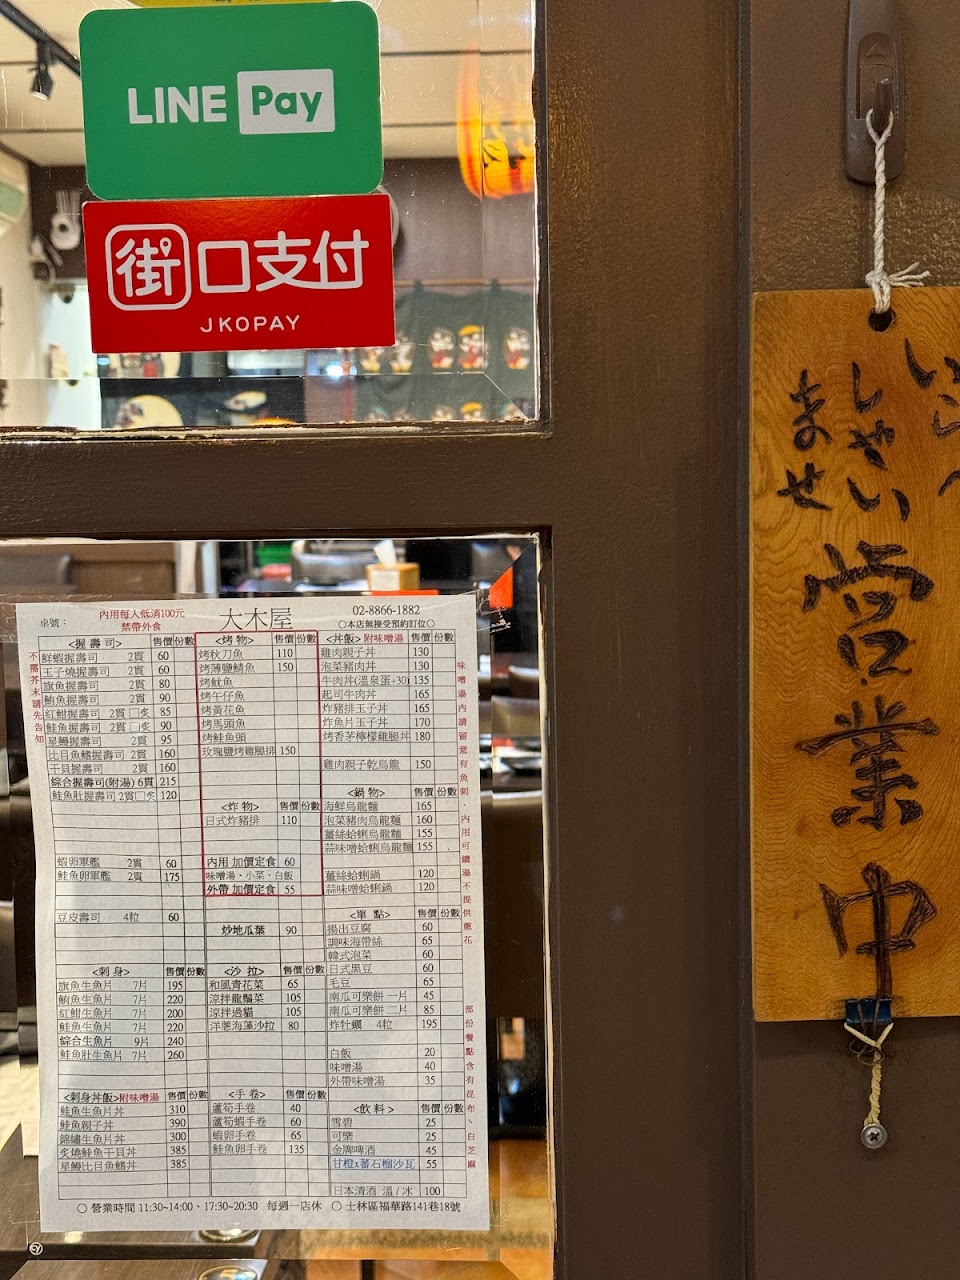 LINE Pay
街口支付
JKOPAY
いらっ
しゃい
ませ
営業中
桌號：
內用每人低消100元
禁帶外食
大木屋
02-8866-1882
〇本店無接受預約訂位〇
不需芥末請先告知
<握壽司> 售價 份數
鮮蝦握壽司 2貫 60
玉子燒握壽司 2貫 60
旗魚握壽司 2貫 80
鮪魚握壽司 2貫 90
紅魽握壽司 2貫 □炙 85
鮭魚握壽司 2貫 □炙 90
星鰻握壽司 2貫 95
比目魚鰭握壽司 2貫 160
干貝握壽司 2貫 160
綜合握壽司(附湯) 6貫 215
鮭魚肚握壽司 2貫 □炙 120
蝦卵軍艦 2貫 60
鮭魚卵軍艦 2貫 175
豆皮壽司 4粒 60
<刺身> 售價 份數
旗魚生魚片 7片 195
鮪魚生魚片 7片 220
紅魽生魚片 7片 200
鮭魚生魚片 7片 220
綜合生魚片 9片 240
鮭魚肚生魚片 7片 260
<刺身丼飯>附味噌湯 售價 份數
鮭魚生魚片丼 310
鮭魚親子丼 390
錦繡生魚片丼 300
炙燒鮭魚干貝丼 385
星鰻比目魚鰭丼 385
<烤物> 售價 份數
烤秋刀魚 110
烤薄鹽鯖魚 150
烤魷魚
烤午仔魚
烤黃花魚
烤馬頭魚
烤鮭魚頭
玫瑰鹽烤雞腿排 150
<炸物> 售價 份數
日式炸豬排 110
內用 加價定食 60
味噌湯、小菜、白飯
外帶 加價定食 55
炒地瓜葉 90
<沙拉> 售價 份數
和風青花菜 65
涼拌龍鬚菜 105
涼拌過貓 105
洋蔥海藻沙拉 80
<手卷> 售價 份數
蘆筍手卷 40
蘆筍蝦手卷 60
蝦卵手卷 65
鮭魚卵手卷 135
<丼飯> 附味噌湯 售價 份數
雞肉親子丼 130
泡菜豬肉丼 130
牛肉丼(溫泉蛋+30) 135
起司牛肉丼 165
炸豬排玉子丼 165
炸魚片玉子丼 170
烤香茅檸檬雞腿丼 180
雞肉親子乾烏龍 150
<鍋物> 售價 份數
海鮮烏龍麵 165
泡菜豬肉烏龍麵 160
薑絲蛤蜊烏龍麵 155
蒜味噌蛤蜊烏龍麵 155
薑絲蛤蜊鍋 120
蒜味噌蛤蜊鍋 120
<單點> 售價 份數
揚出豆腐 60
調味海帶絲 65
韓式泡菜 60
日式黑豆 60
毛豆 65
南瓜可樂餅 一片 45
南瓜可樂餅 二片 85
炸牡蠣 4粒 195
白飯 20
味噌湯 40
外帶味噌湯 35
<飲料> 售價 份數
雪碧 25
可樂 25
金牌啤酒 45
甘橙x蕃石榴沙瓦 55
日本清酒 溫/冰 100
味噌湯內請留意有魚刺、內用可續湯不提供蔥花
部份餐點含有昆布、白芝麻
〇 營業時間 11:30~14:00、17:30~20:30 每週一店休 〇 士林區福華路141巷18號